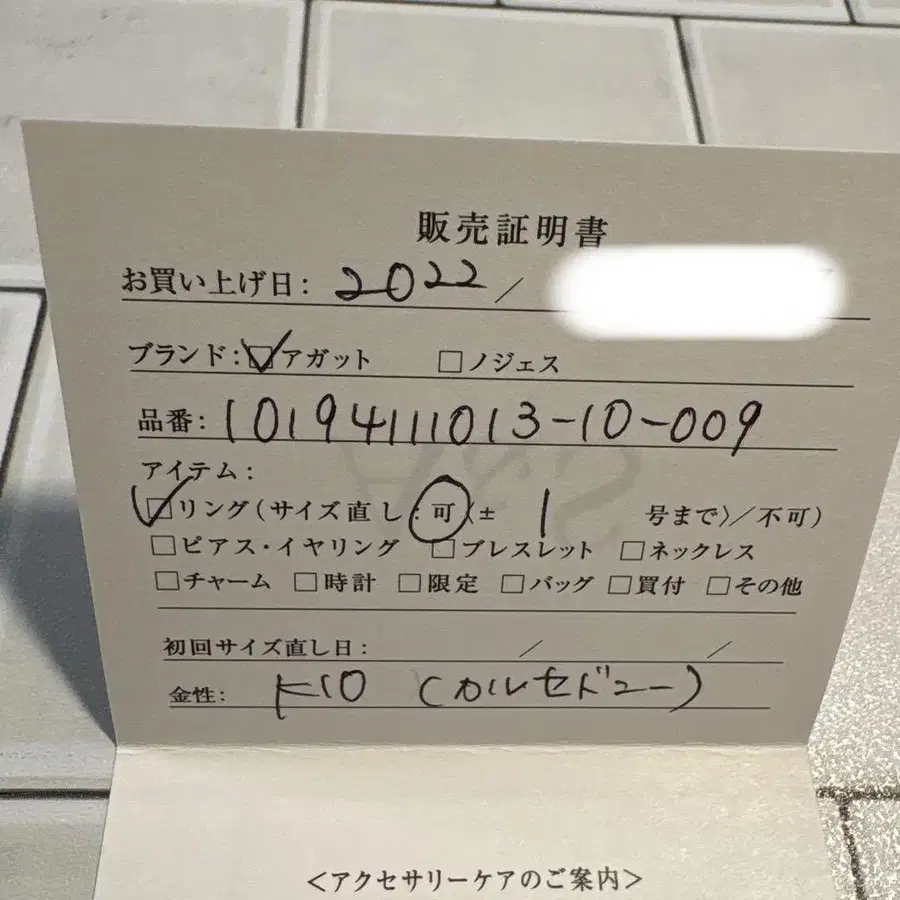 販売証明書
お買い上げ日: 2022 /
ブランド: ☑アガット □ノジェス
品番: 10194111013-10-009
アイテム:
☑リング(サイズ直し:可〈± 1 号まで〉/不可)
□ピアス・イヤリング □ブレスレット □ネックレス
□チャーム □時計 □限定 □バッグ □買付 □その他
初回サイズ直し日: / /
金性: K10 (カルセドニー)
<アクセサリーケアのご案内>